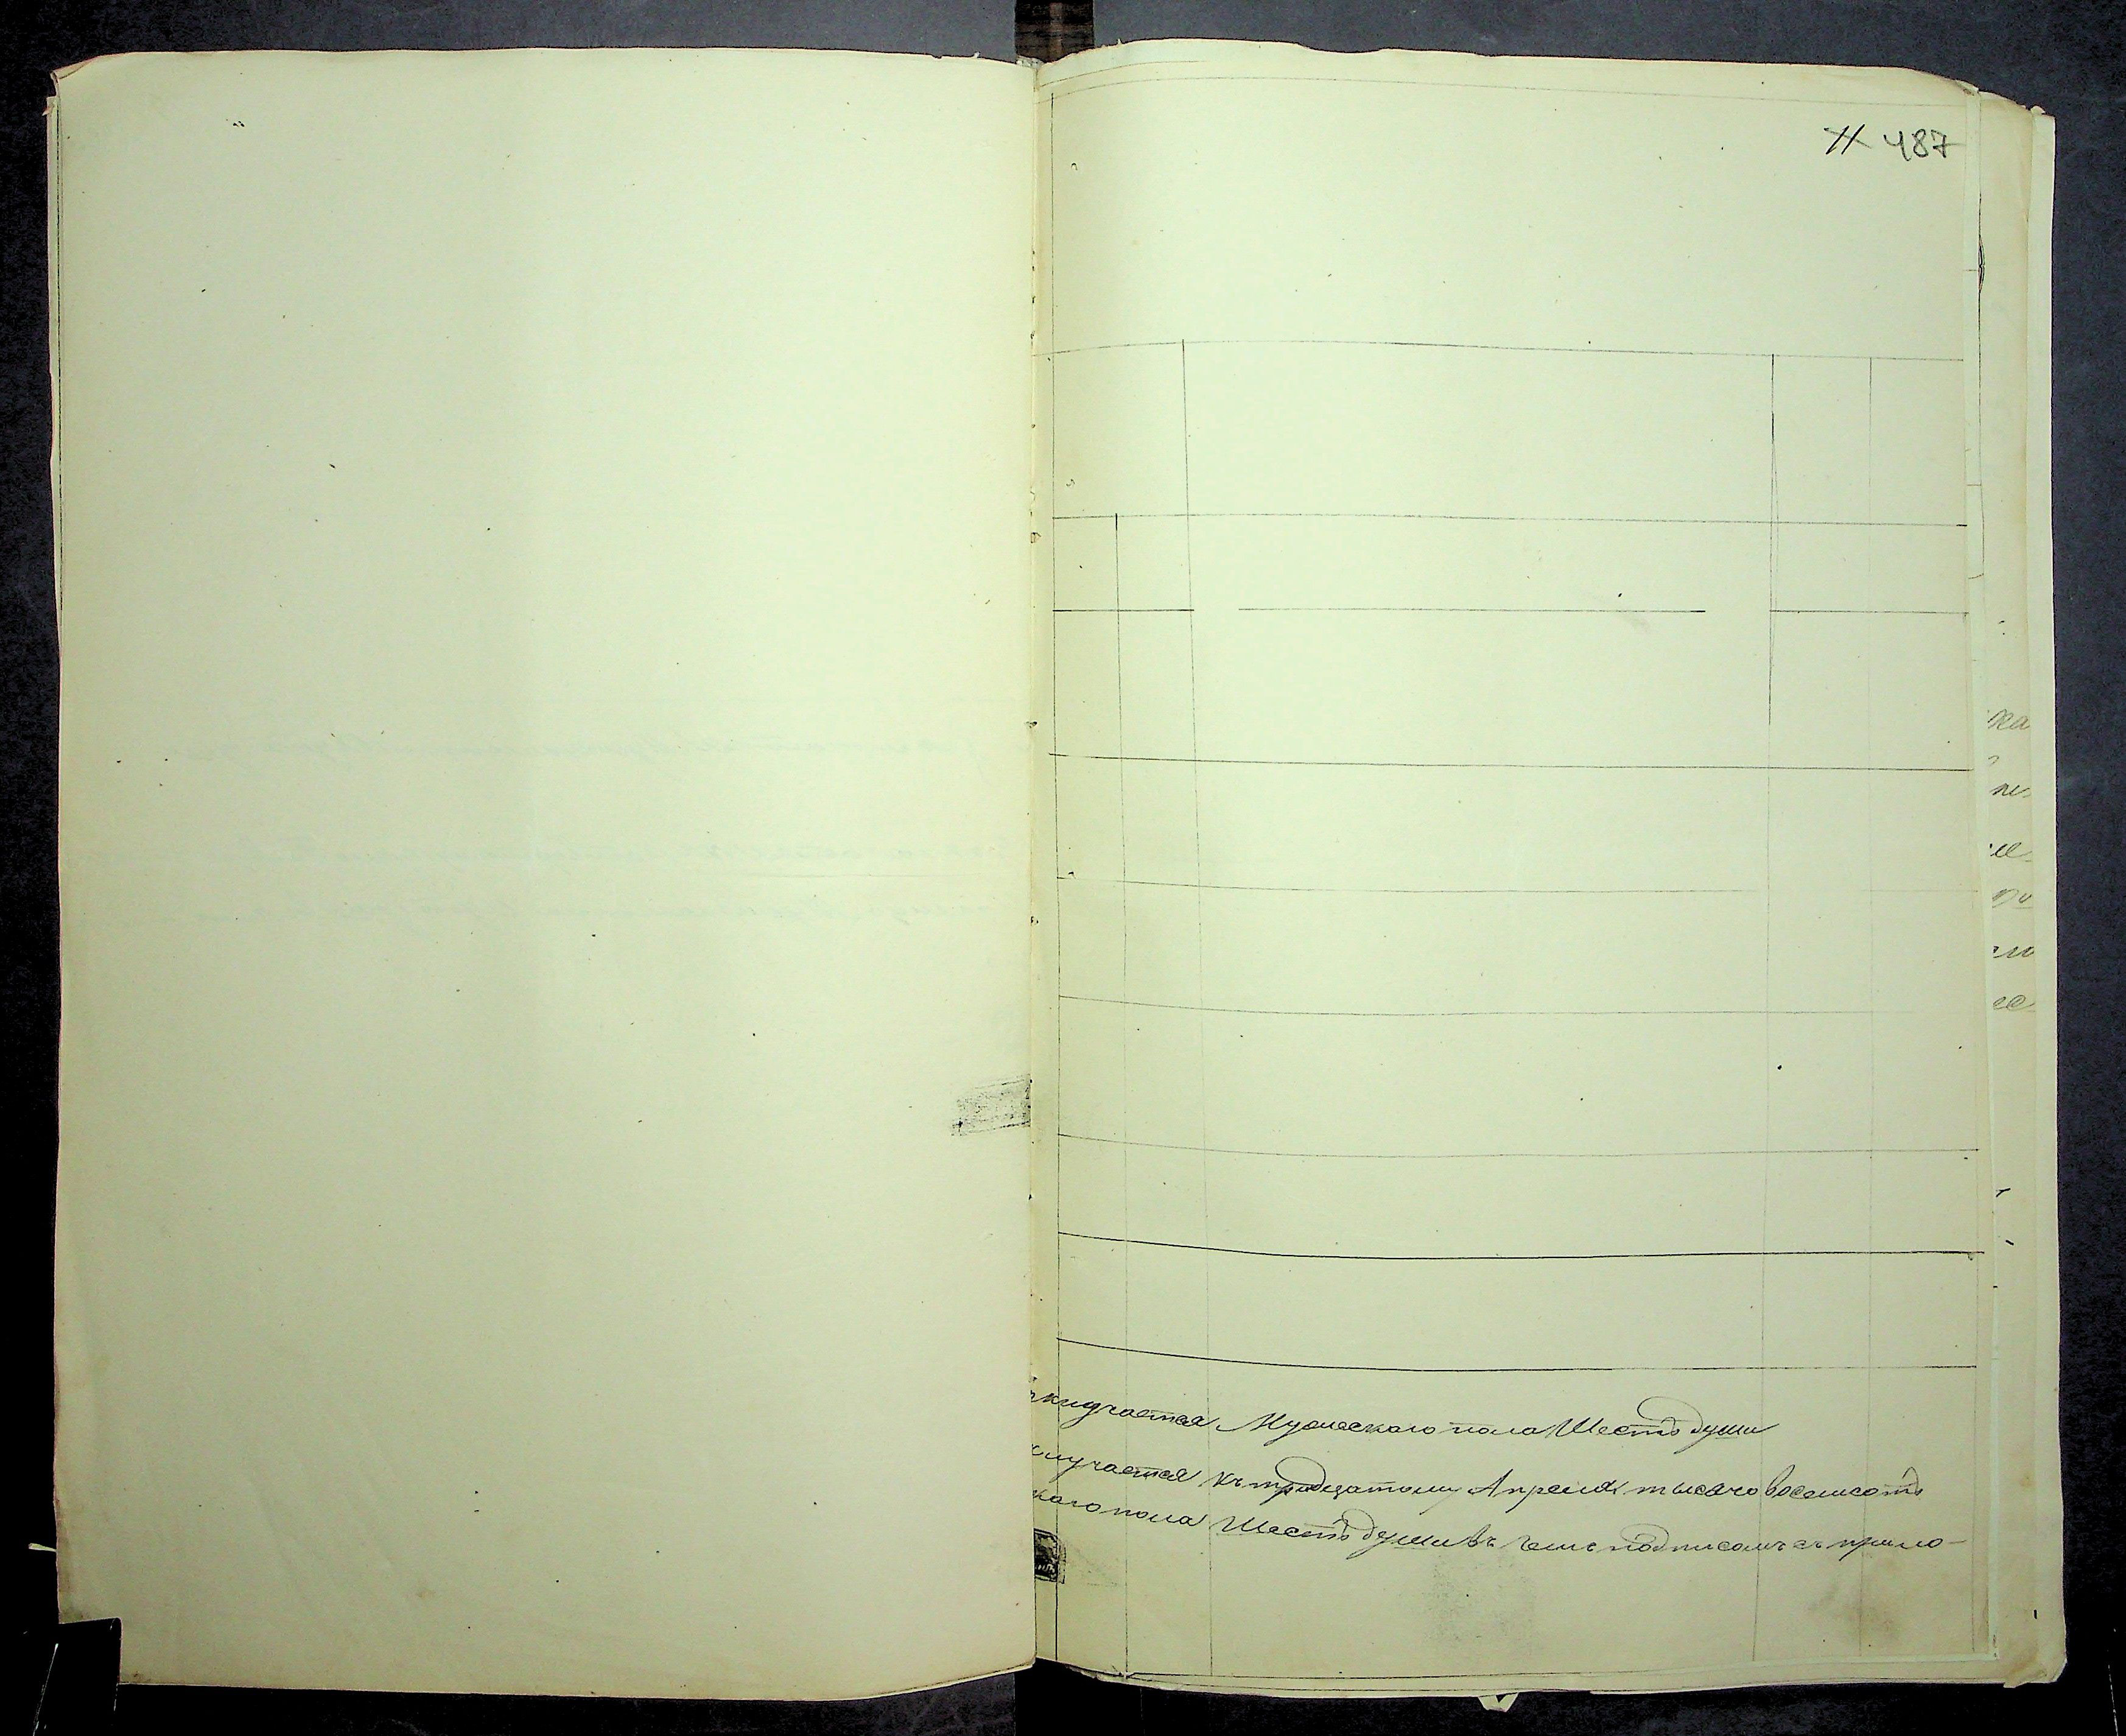 11 487
ключается Мужескаго пола Шесть души
ключается къ тридцатому Апреля тысячо восемсотъ
каго пола Шесть души въ чемъ подписомъ съ прило-